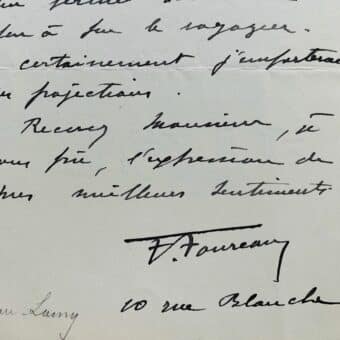 sur le voyage.
certainement j'emporterai
projections.
Recevez Monsieur, je
vous prie, l'expression de
mes meilleurs sentiments
F. Foureau
10 rue Blanche
Lamy